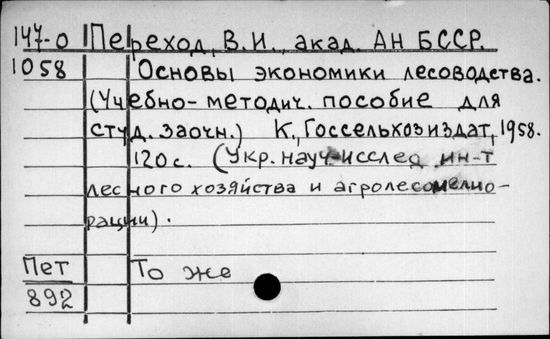 147-0 Переход, В.И., акад. АН БССР.
1058 Основы экономики лесоводства.
(Учебно-методич. пособие для
студ. заочн.) К., Госсельхозиздат, 1958.
120 с. (Укр. науч-исслед. ин-т
лесного хозяйства и агролесомелио-
рации).
Пет То же
892